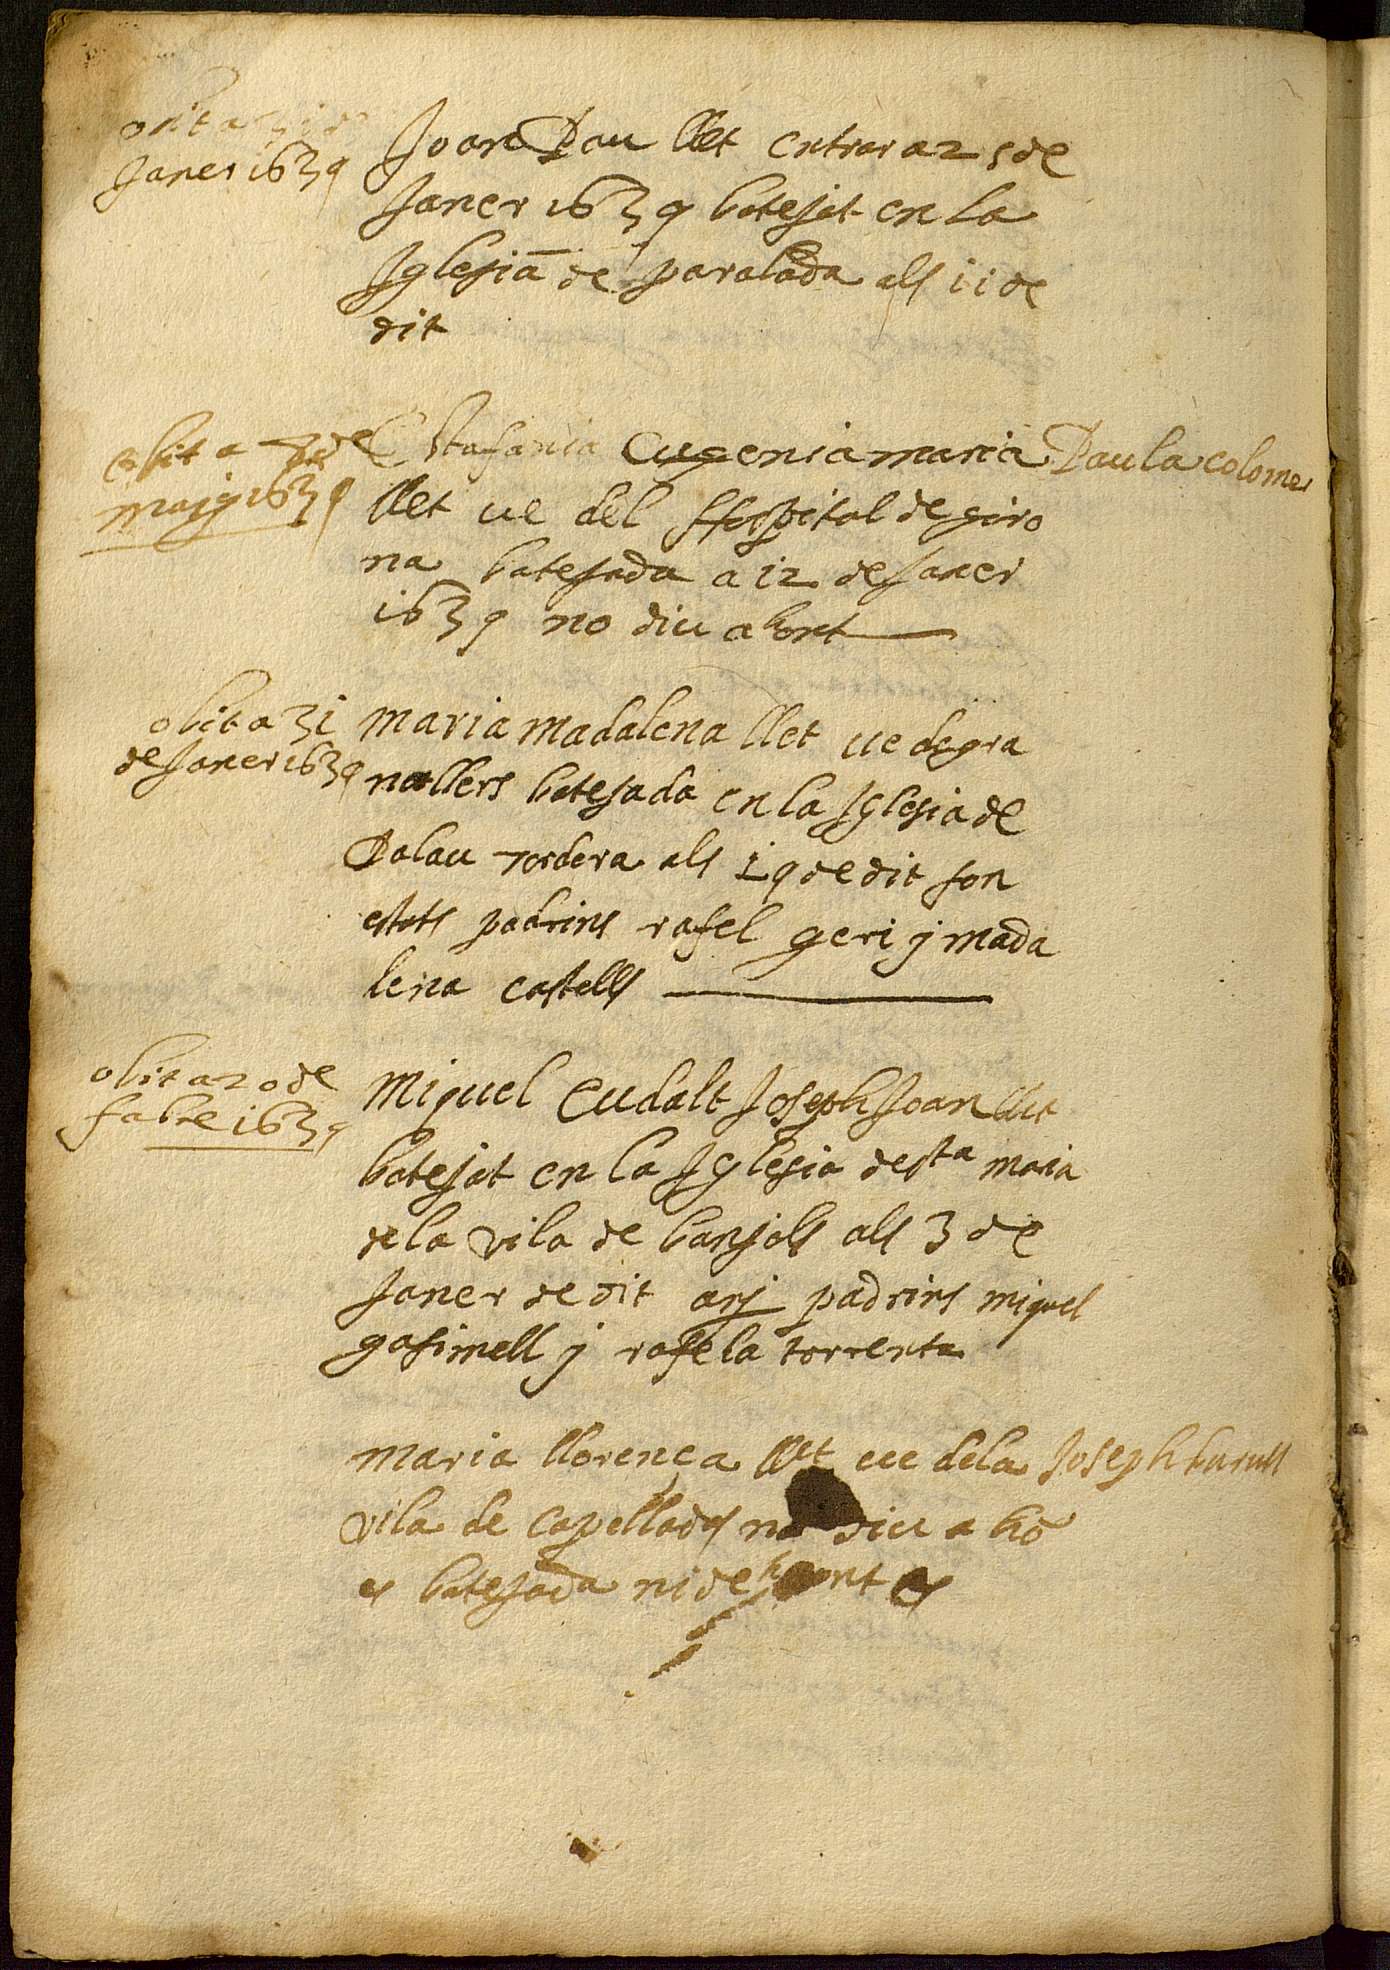 obit a 31 de
Janer 1639
Joan Pau llet entrar a 25 de
Janer 1639 batejat en la
Iglesia de paralada als 11 de
dit
obit a 7 de
maig 1639
Estafania Eugenia maria Paula colomer
llet ve del Hospital de giro
na batejada a 12 de Janer
1639 no diu ahont
obit a 31
de Janer 1639
maria madalena llet ve de gra
nollers batejada en la Iglesia de
Palau tordera als 19 de dit son
estats padrins rafel geri j mada
lena castells
obit a 20 de
fabre 1639
Miquel Eudalt Joseph Joan llet
batejat en la Iglesia de sta maria
de la vila de banyols als 3 de
Janer de dit anj padrins miquel
gasimell j rafela torrenta
maria llorença llet ve de la Joseph burull
vila de capellades no diu a ho
es batejada ni de hont es